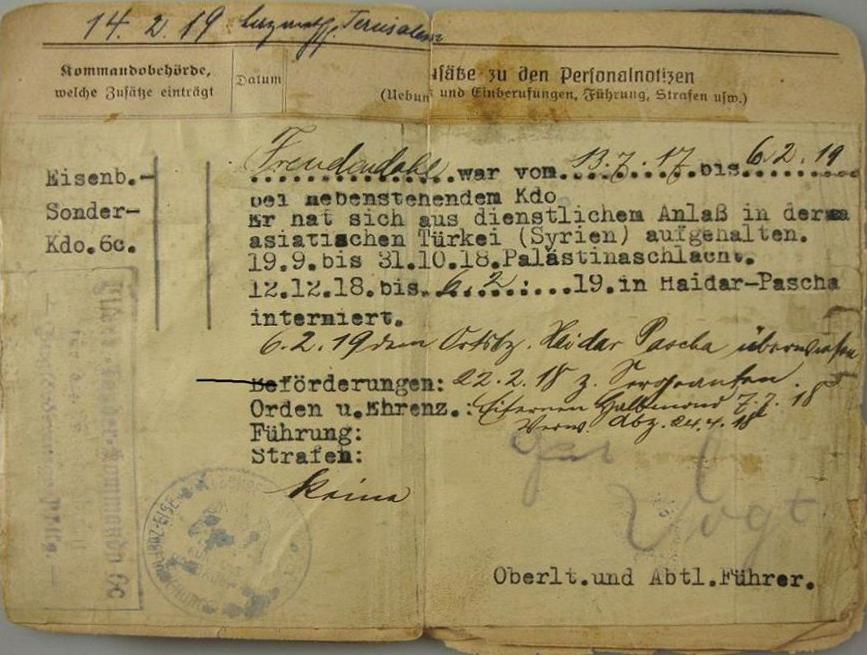 14. 2. 19 Jerusalem
Kommandobehörde, welche Zusätze einträgt
Datum
Zusätze zu den Personalnotizen
(Uebun und Einberufungen, Führung, Strafen usw.)
Eisenb.-
Sonder-
Kdo.6c.
war vom 13.7.17 bis 6.2.19
bei nebenstehendem Kdo
Er hat sich aus dienstlichem Anlaß in der
asiatischen Türkei (Syrien) aufgehalten.
19.9.bis 31.10.18.Palästinaschlacht.
12.12.18.bis 6.2. 19.in Haidar-Pascha
interniert.
6.2.19 dem Ortskz. Heidar Pascha überwiesen
Beförderungen: 22.2.18 z. Sergeanten.
Orden u.Ehrenz.: Eisernen Halbmond 7.7.18
Verw. Abz. 24.4.18
Führung: gut
Strafen:
keine
Vogt
Oberlt.und Abtl.Führer.